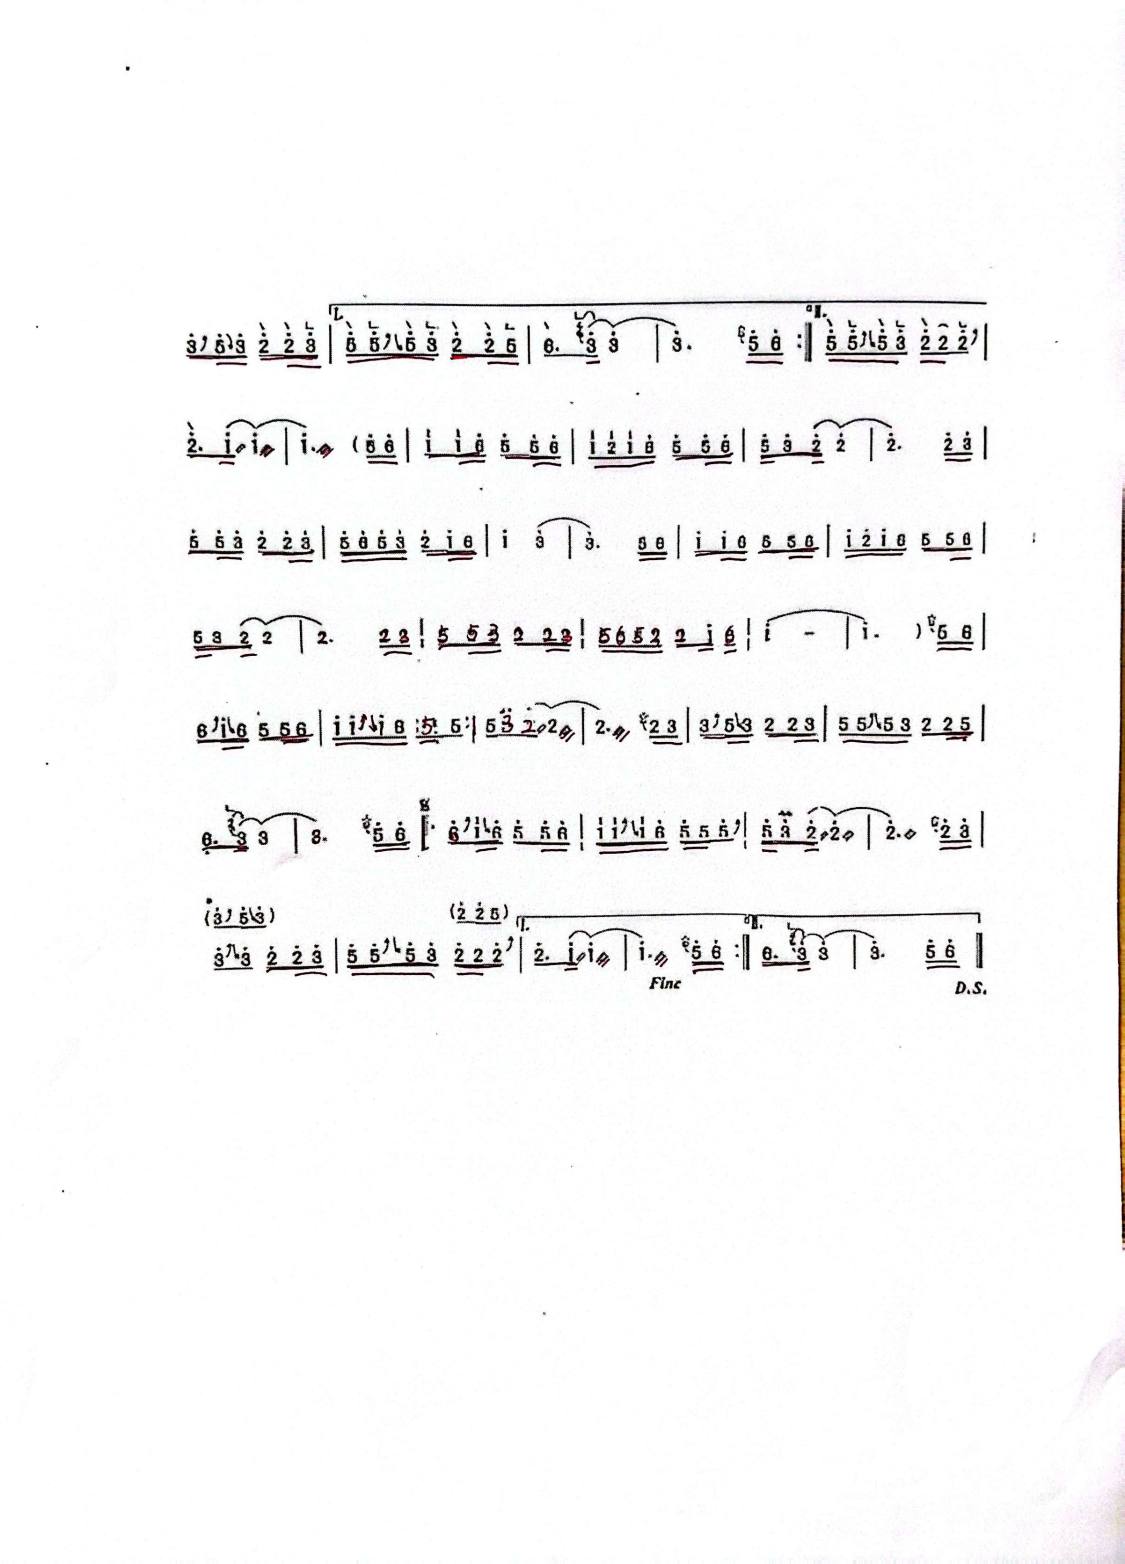 I. II.
3 5 3 2 2 3 | 5 5 5 3 2 2 5 | 6. 3 3 | 3. 5 6 :‖ 5 5 5 3 2 2 2 |
2. i i | i. ( 5 6 | i i 6 5 5 6 | i 2 i 6 5 5 6 | 5 3 2 2 | 2. 2 3 |
5 5 3 2 2 3 | 5 6 5 3 2 i 6 | i 3 | 3. 5 6 | i i 6 5 5 6 | i 2 i 6 5 5 6 |
5 3 2 2 | 2. 2 3 | 5 5 3 2 2 3 | 5 6 5 2 2 i 6 | i – | i. ) 5 6 |
6 i 6 5 5 6 | i i i 6 5 5 | 5 3 2 2 | 2. 2 3 | 3 5 3 2 2 3 | 5 5 5 3 2 2 5 |
6. 3 3 | 3. 5 6 6 i 6 5 5 6 | i i i 6 5 5 5 | 5 3 2 2 | 2. 2 3 |
(3 5 3) (2 2 5) I. II.
3 3 2 2 3 | 5 5 5 3 2 2 2 | 2. i i | i. 5 6 :‖ 6. 3 3 | 3. 5 6 ‖
Fine D.S.